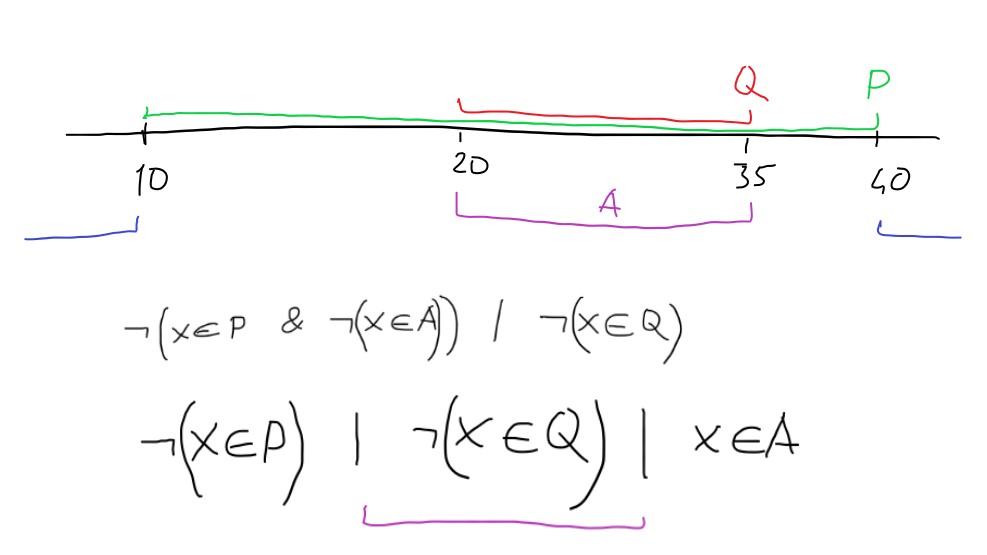 Q P
10 20 35 40
A
¬(x∈P & ¬(x∈A)) | ¬(x∈Q)
¬(x∈P) | ¬(x∈Q) | x∈A